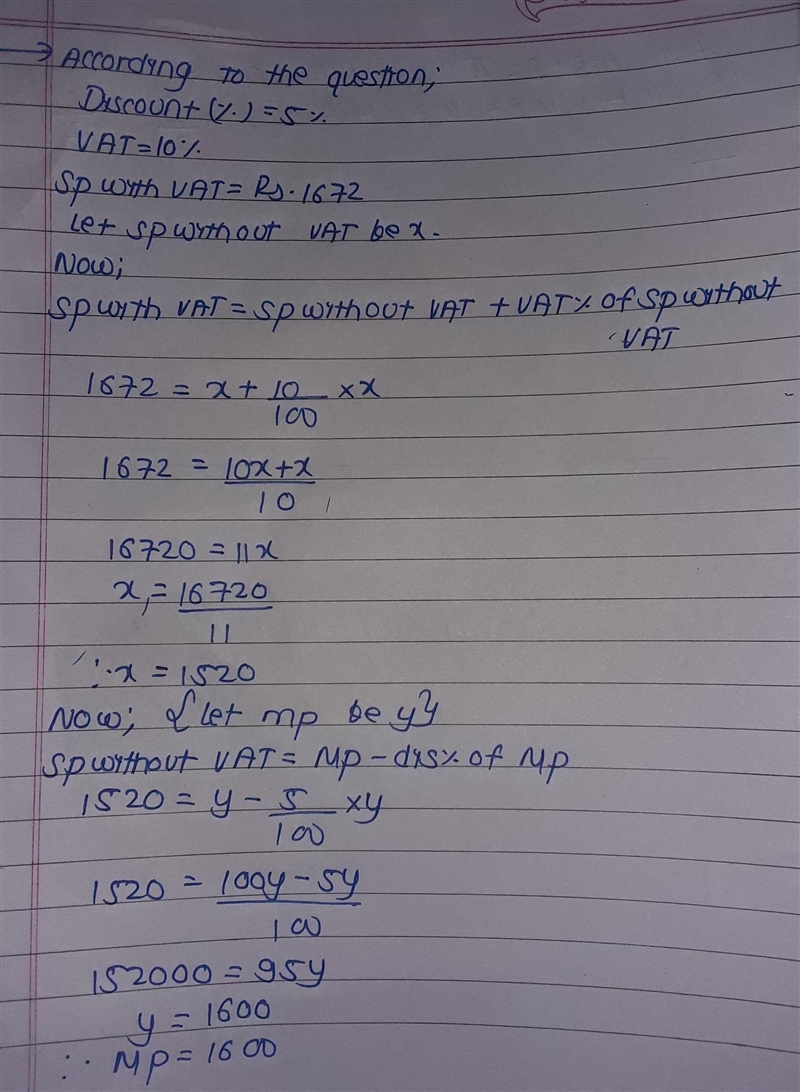 → According to the question;
Discount (%) = 5%
VAT = 10%
Sp with VAT = Rs. 1672
Let sp without VAT be x.
Now;
Sp with VAT = Sp without VAT + VAT% of Sp without VAT
1672 = x + 10/100 × x
1672 = 10x+x/10
16720 = 11x
x = 16720/11
∴ x = 1520
Now; {let mp be y}
Sp without VAT = Mp - dis% of Mp
1520 = y - 5/100 × y
1520 = 100y - 5y/100
152000 = 95y
y = 1600
∴ Mp = 1600